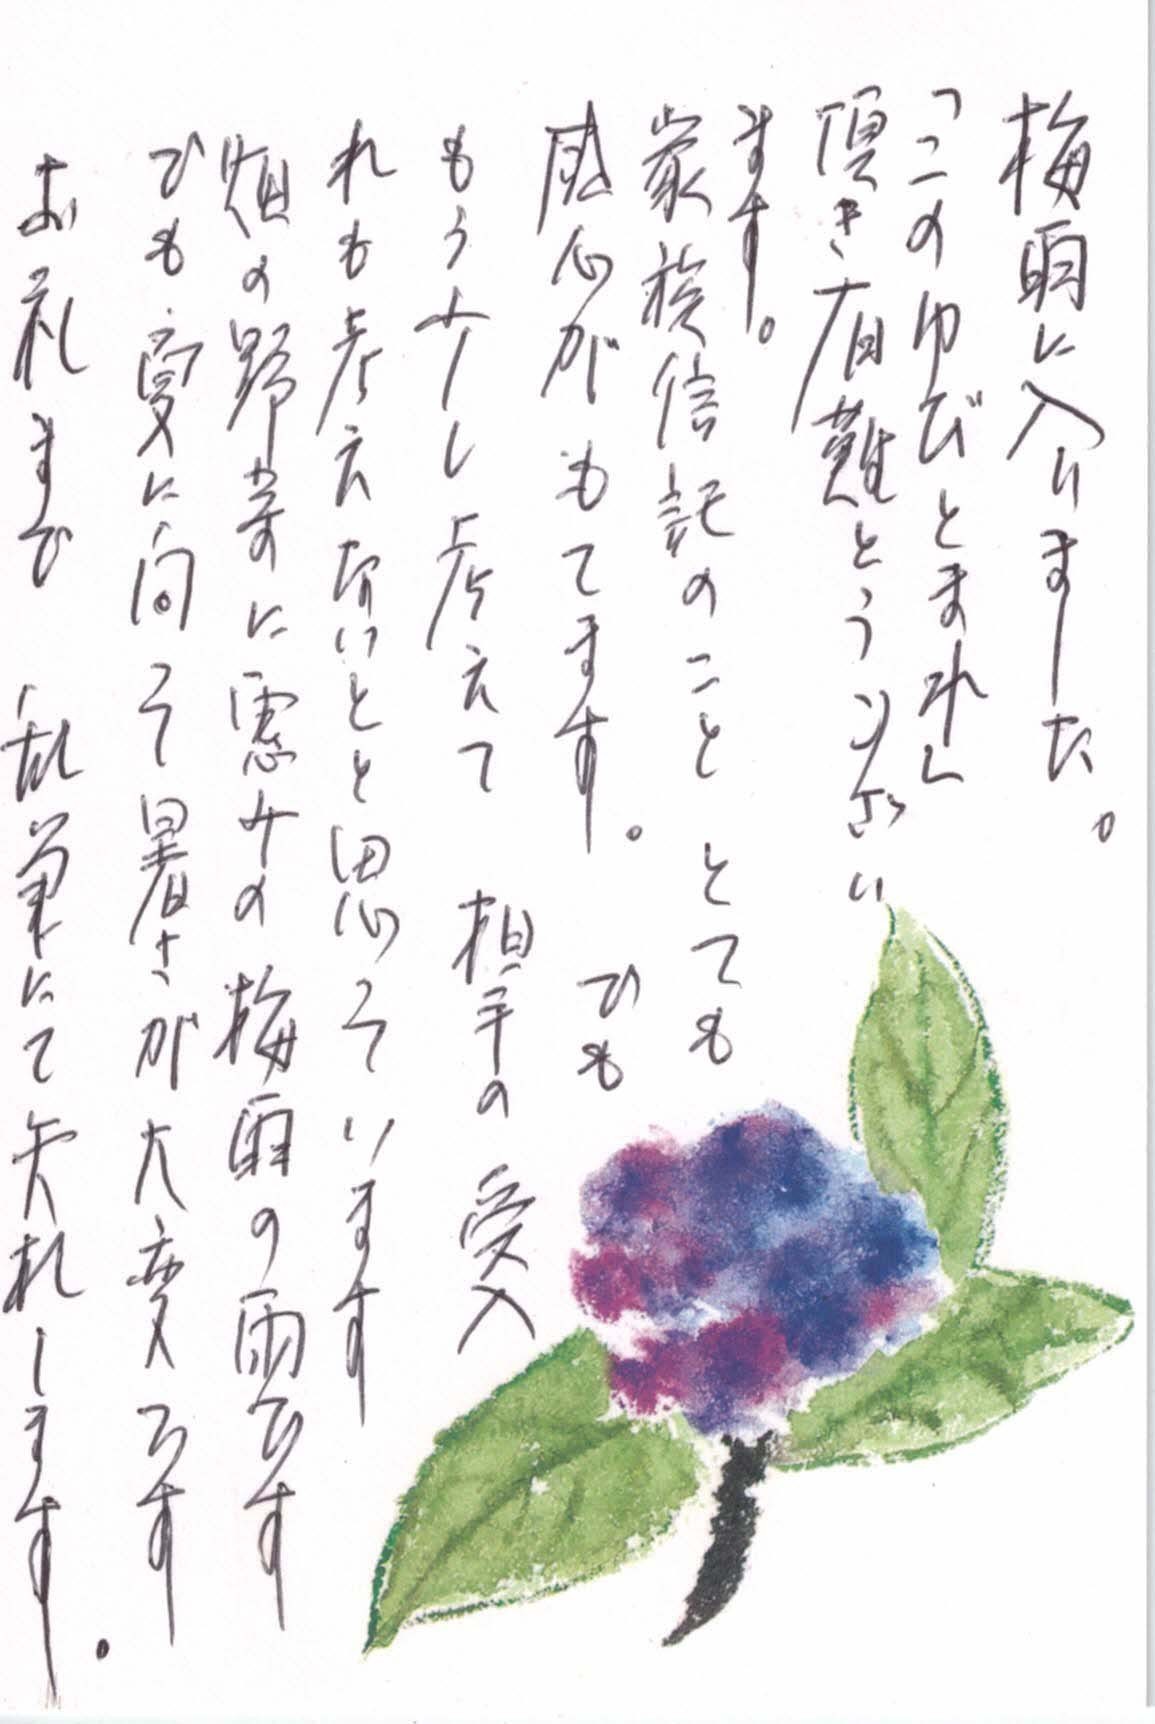 梅雨に入りました。
「このゆびとまれ」
頂き有難とうござい
ます。
家族信託のこと とても
感心がもてます。 でも
もう少し考えて 相手の受入
れも考えないとと思っています
畑の野菜に恵みの梅雨の雨です
でも夏に向って暑さが大変です
お礼まで 乱筆にて失礼します。